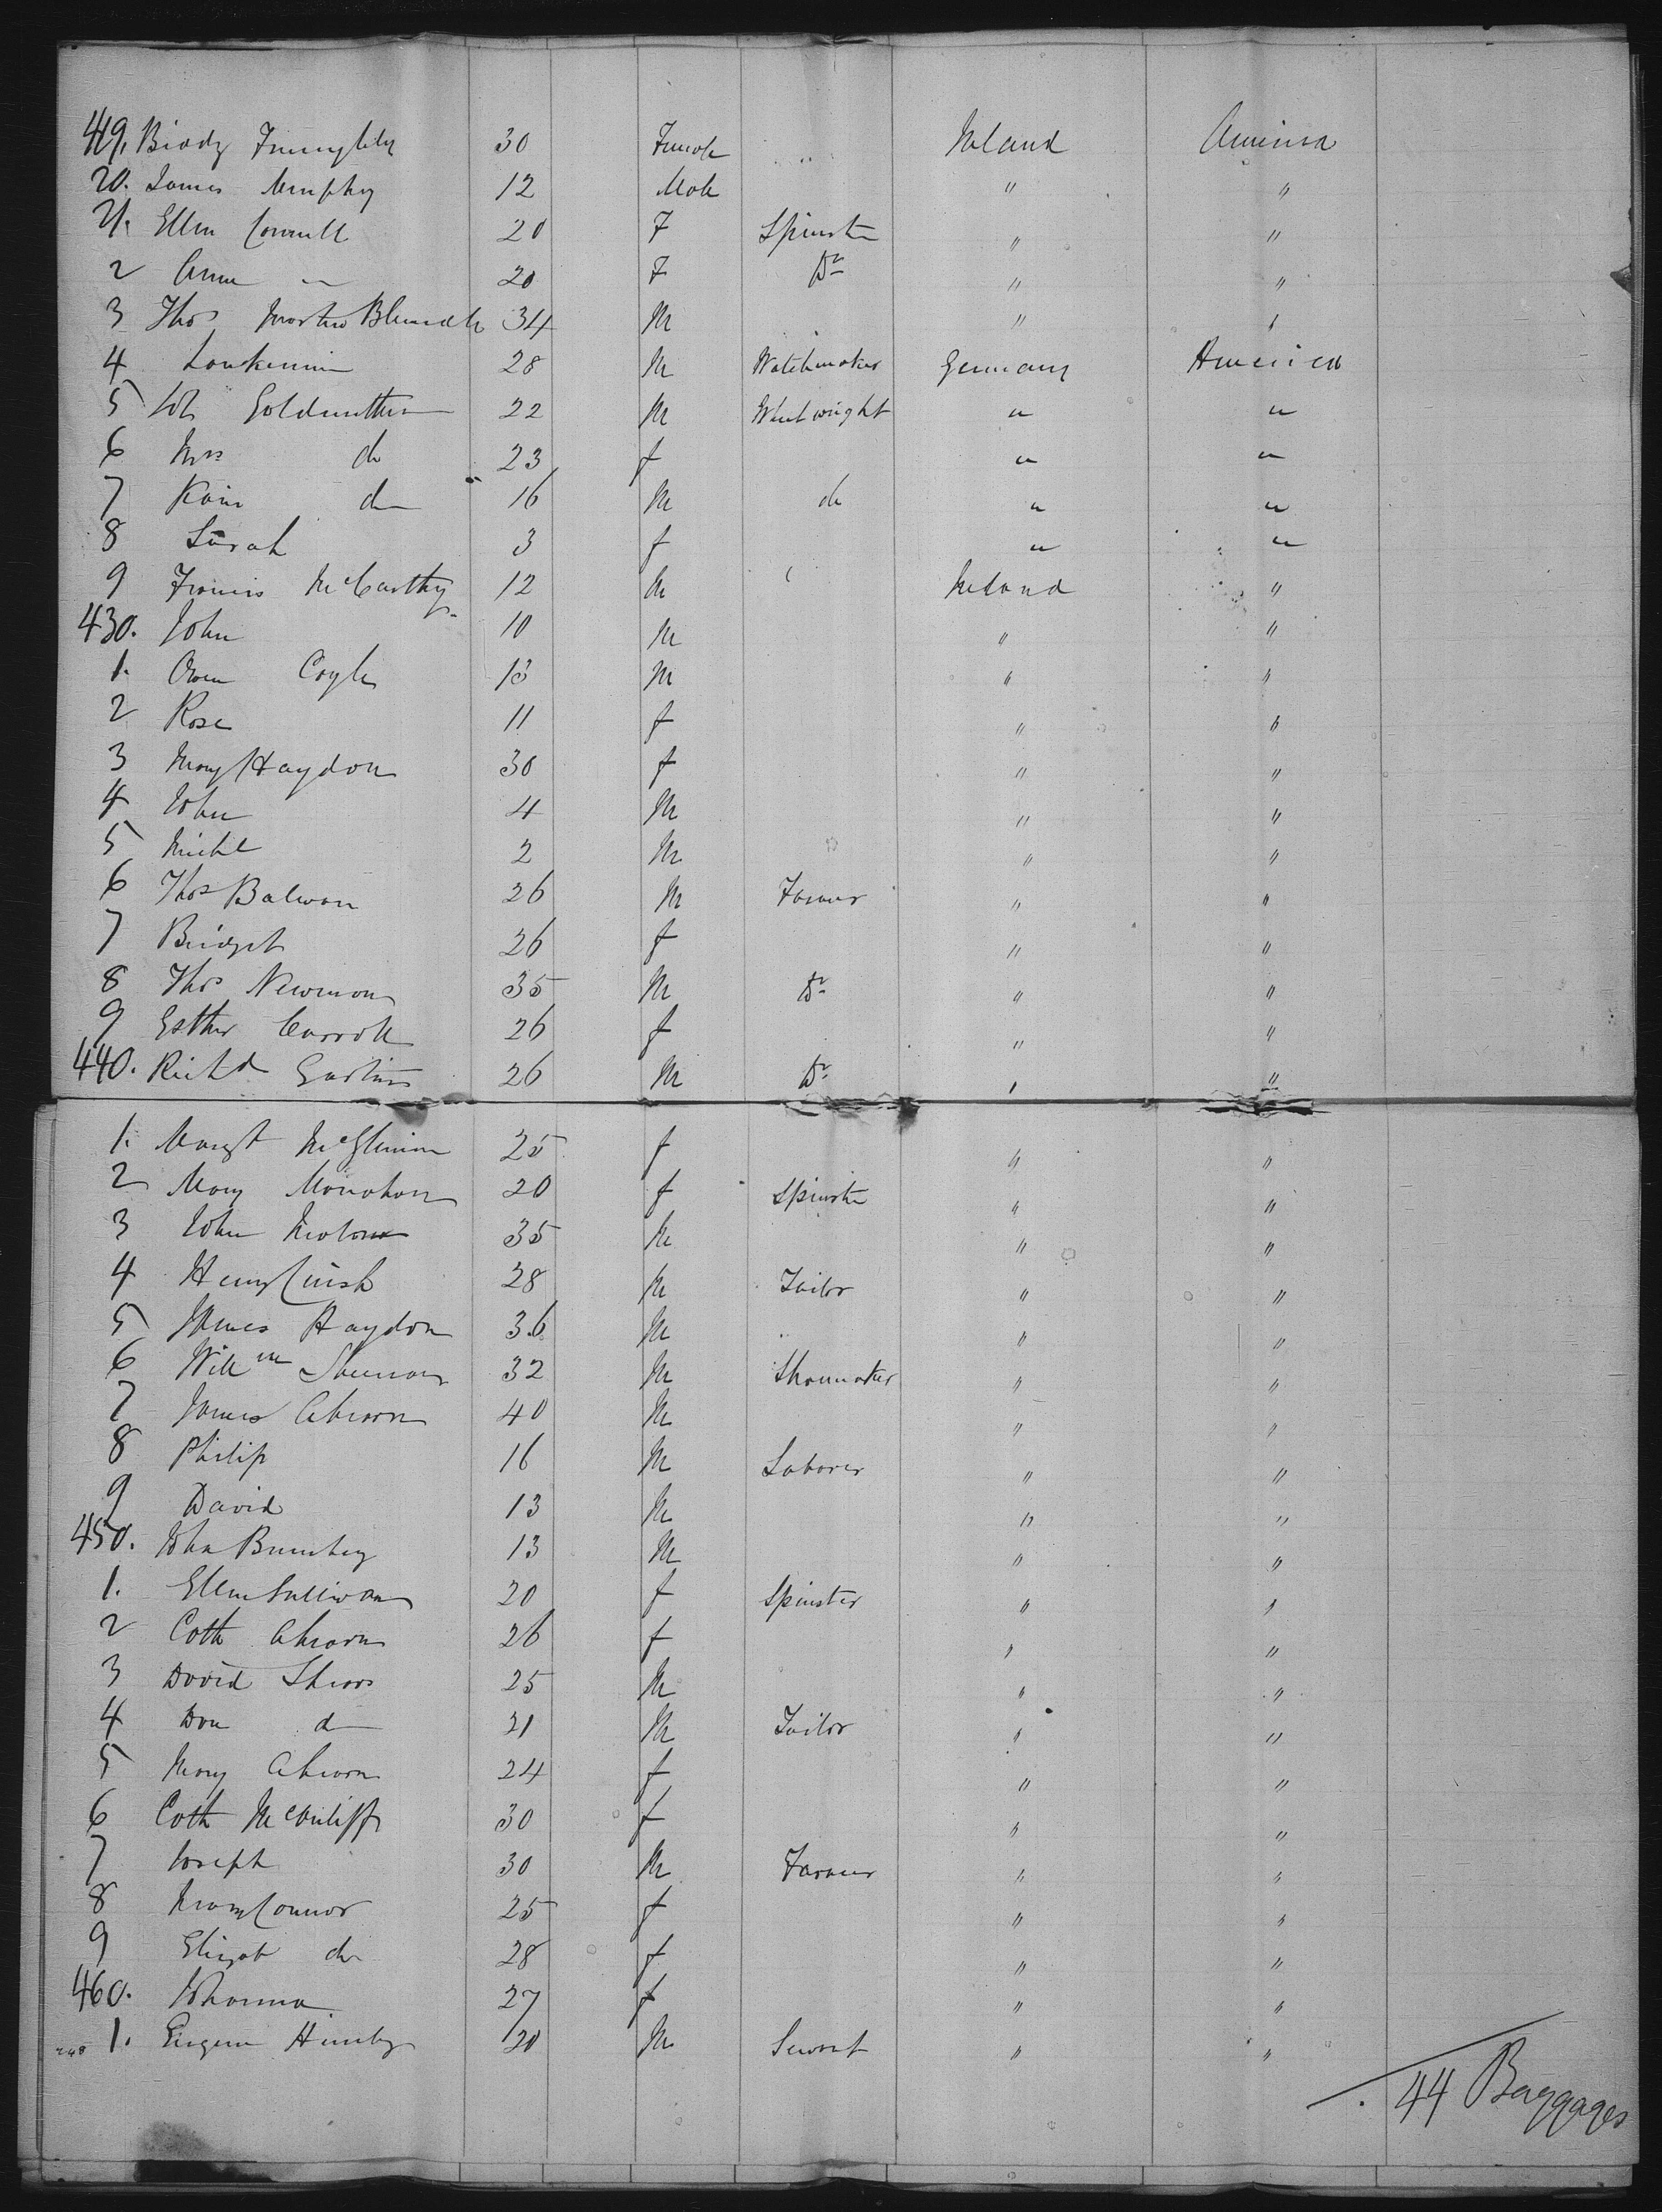 419. Biddy 30 Female " Ireland America
20. James Murphy 12 Male " "
21. Ellen Connell 20 F Spinster " "
2 Anne " 20 F Do " "
3 Thos 34 M " "
4 28 M Watchmaker Germany America
5 22 M Wheelwright " "
6 Mrs do 23 f " "
7 do 16 M do " "
8 Sarah 3 f " "
9 Francis McCarthy 12 M Ireland "
430. John 10 M " "
1. Owen Coyle 13 M " "
2 Rose 11 f " "
3 Mary Haydon 30 f " "
4 John 4 M " "
5 Michl 2 M " "
6 Thos 26 M Farmer " "
7 Bridget 26 f " "
8 Thos Newman 35 M Do " "
9 Esther Carroll 26 f " "
440. Richd 26 M Do " "
1. Margt 25 f " "
2 Mary Monahan 20 f Spinster " "
3 John 35 M " "
4 Henry 28 M Tailor " "
5 James Haydon 36 M " "
6 Willm 32 M Shoemaker " "
7 James Ahearn 40 M " "
8 Philip 16 M Laborer " "
9 David 13 M " "
450. John 13 M " "
1. Ellen Sullivan 20 f Spinster " "
2 Cath Ahearn 26 f " "
3 David 25 M " "
4 Dan do 21 M Tailor " "
5 Mary Ahearn 24 f " "
6 Cath McAuliff 30 f " "
7 Joseph 30 M Farmer " "
8 Mary Connor 25 f " "
9 Elizab do 28 f " "
460. Johanna 27 f " "
1. Eugene 20 M Servant " "
44 Baggages